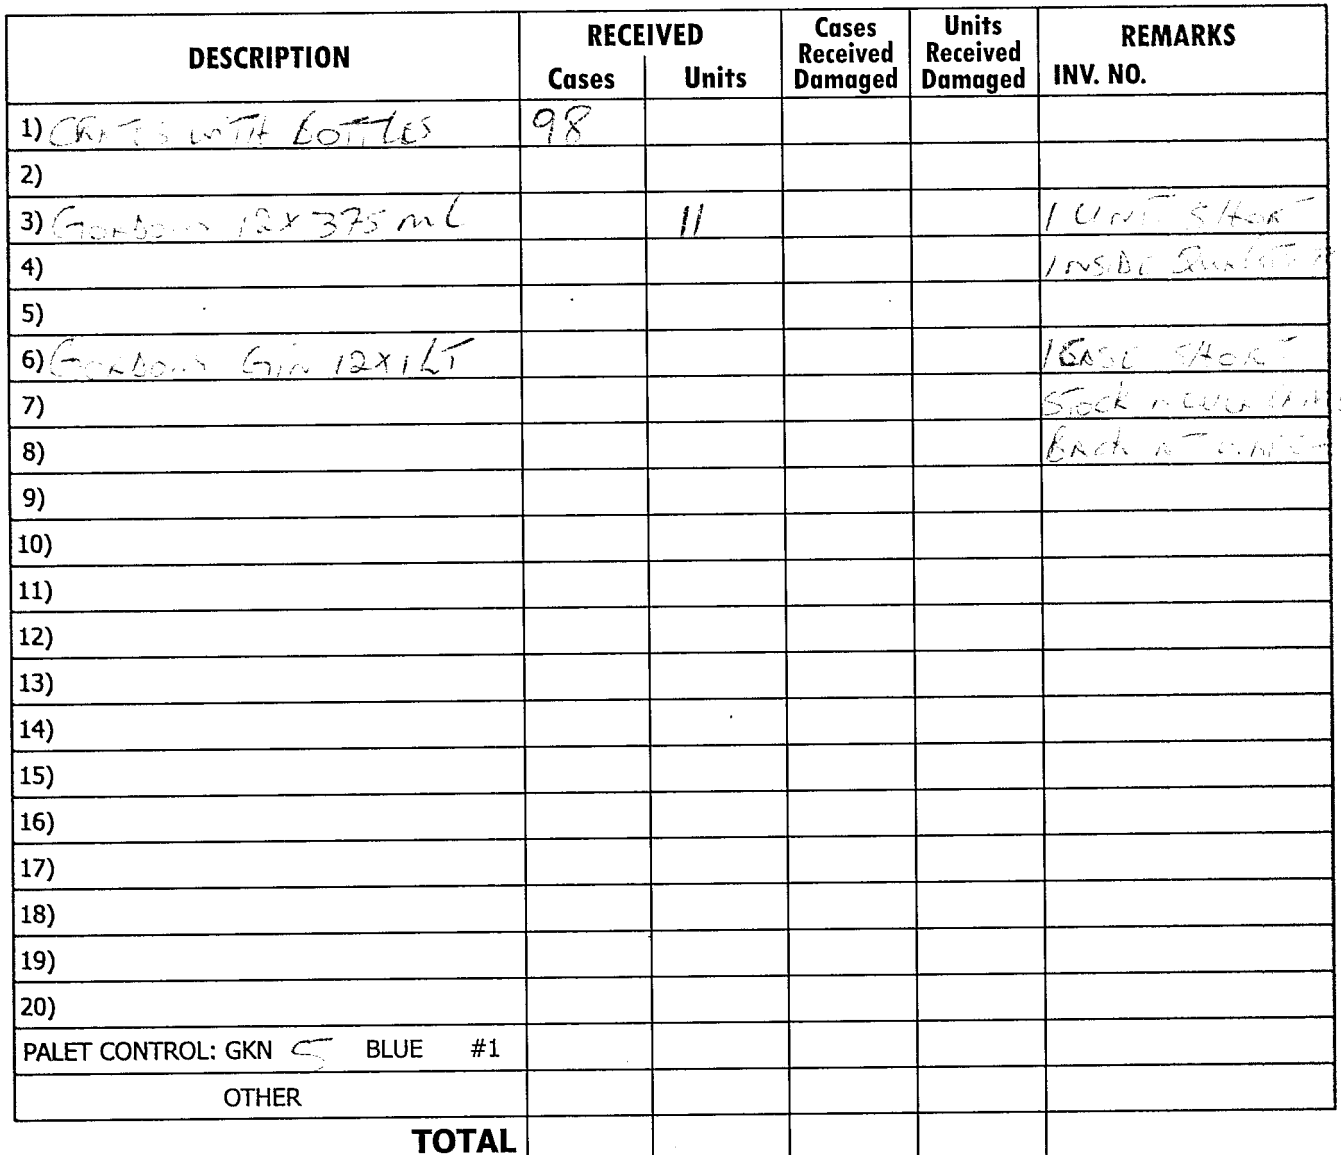 DESCRIPTION RECEIVED Cases Received Damaged Units Received Damaged REMARKS
Cases Units INV. NO.
1) CRATES WITH BOTTLES 98
2)
3) Gordons 12x375 mL 11 1 UNIT SHORT
4) INSIDE
5)
6) Gordons Gin 12x1 LT 1 CASE SHORT
7) Stock never
8) Back
9)
10)
11)
12)
13)
14)
15)
16)
17)
18)
19)
20)
PALET CONTROL: GKN 5 BLUE #1
OTHER
TOTAL